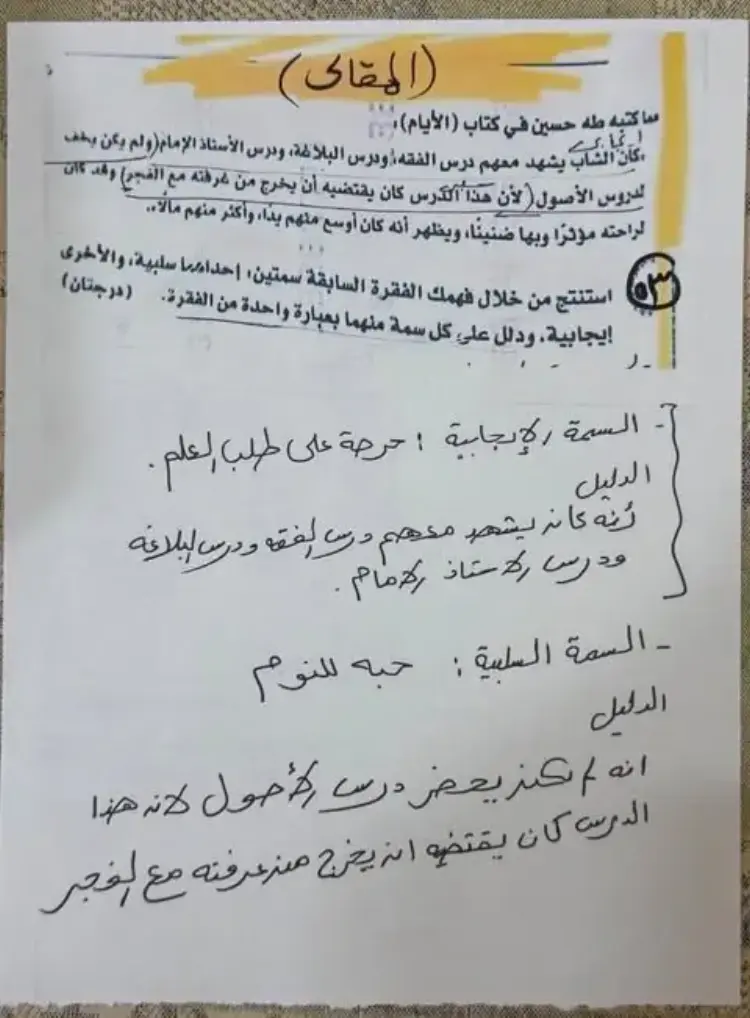 (المقالى)
مما كتبه طه حسين في كتاب (الأيام):
إيجابي
،كان الشاب يشهد معهم درس الفقه، ودرس البلاغة، ودرس الأستاذ الإمام (ولم يكن يخف
لدروس الأصول (لأن هذا الدرس كان يقتضيه أن يخرج من غرفته مع الفجر) وقد كان
لراحته مؤثرًا وبها ضنينًا، ويظهر أنه كان أوسع منهم يدًا، وأكثر منهم مالًا،.
٥٣
استنتج من خلال فهمك الفقرة السابقة سمتين: إحداهما سلبية، والأخرى
إيجابية، ودلل على كل سمة منهما بعبارة واحدة من الفقرة. (درجتان)
- السمة الإيجابية : حرصة على طلب العلم .
الدليل
أنه كان يشهد معهم درس الفقه ودرس البلاغه
ودرس الاستاذ الامام .
- السمة السلبية : حبه للنوم
الدليل
انه لم يكن يحضر درس الأصول لانه هذا
الدرس كان يقتضيه ان يخرج من غرفته مع الفجر